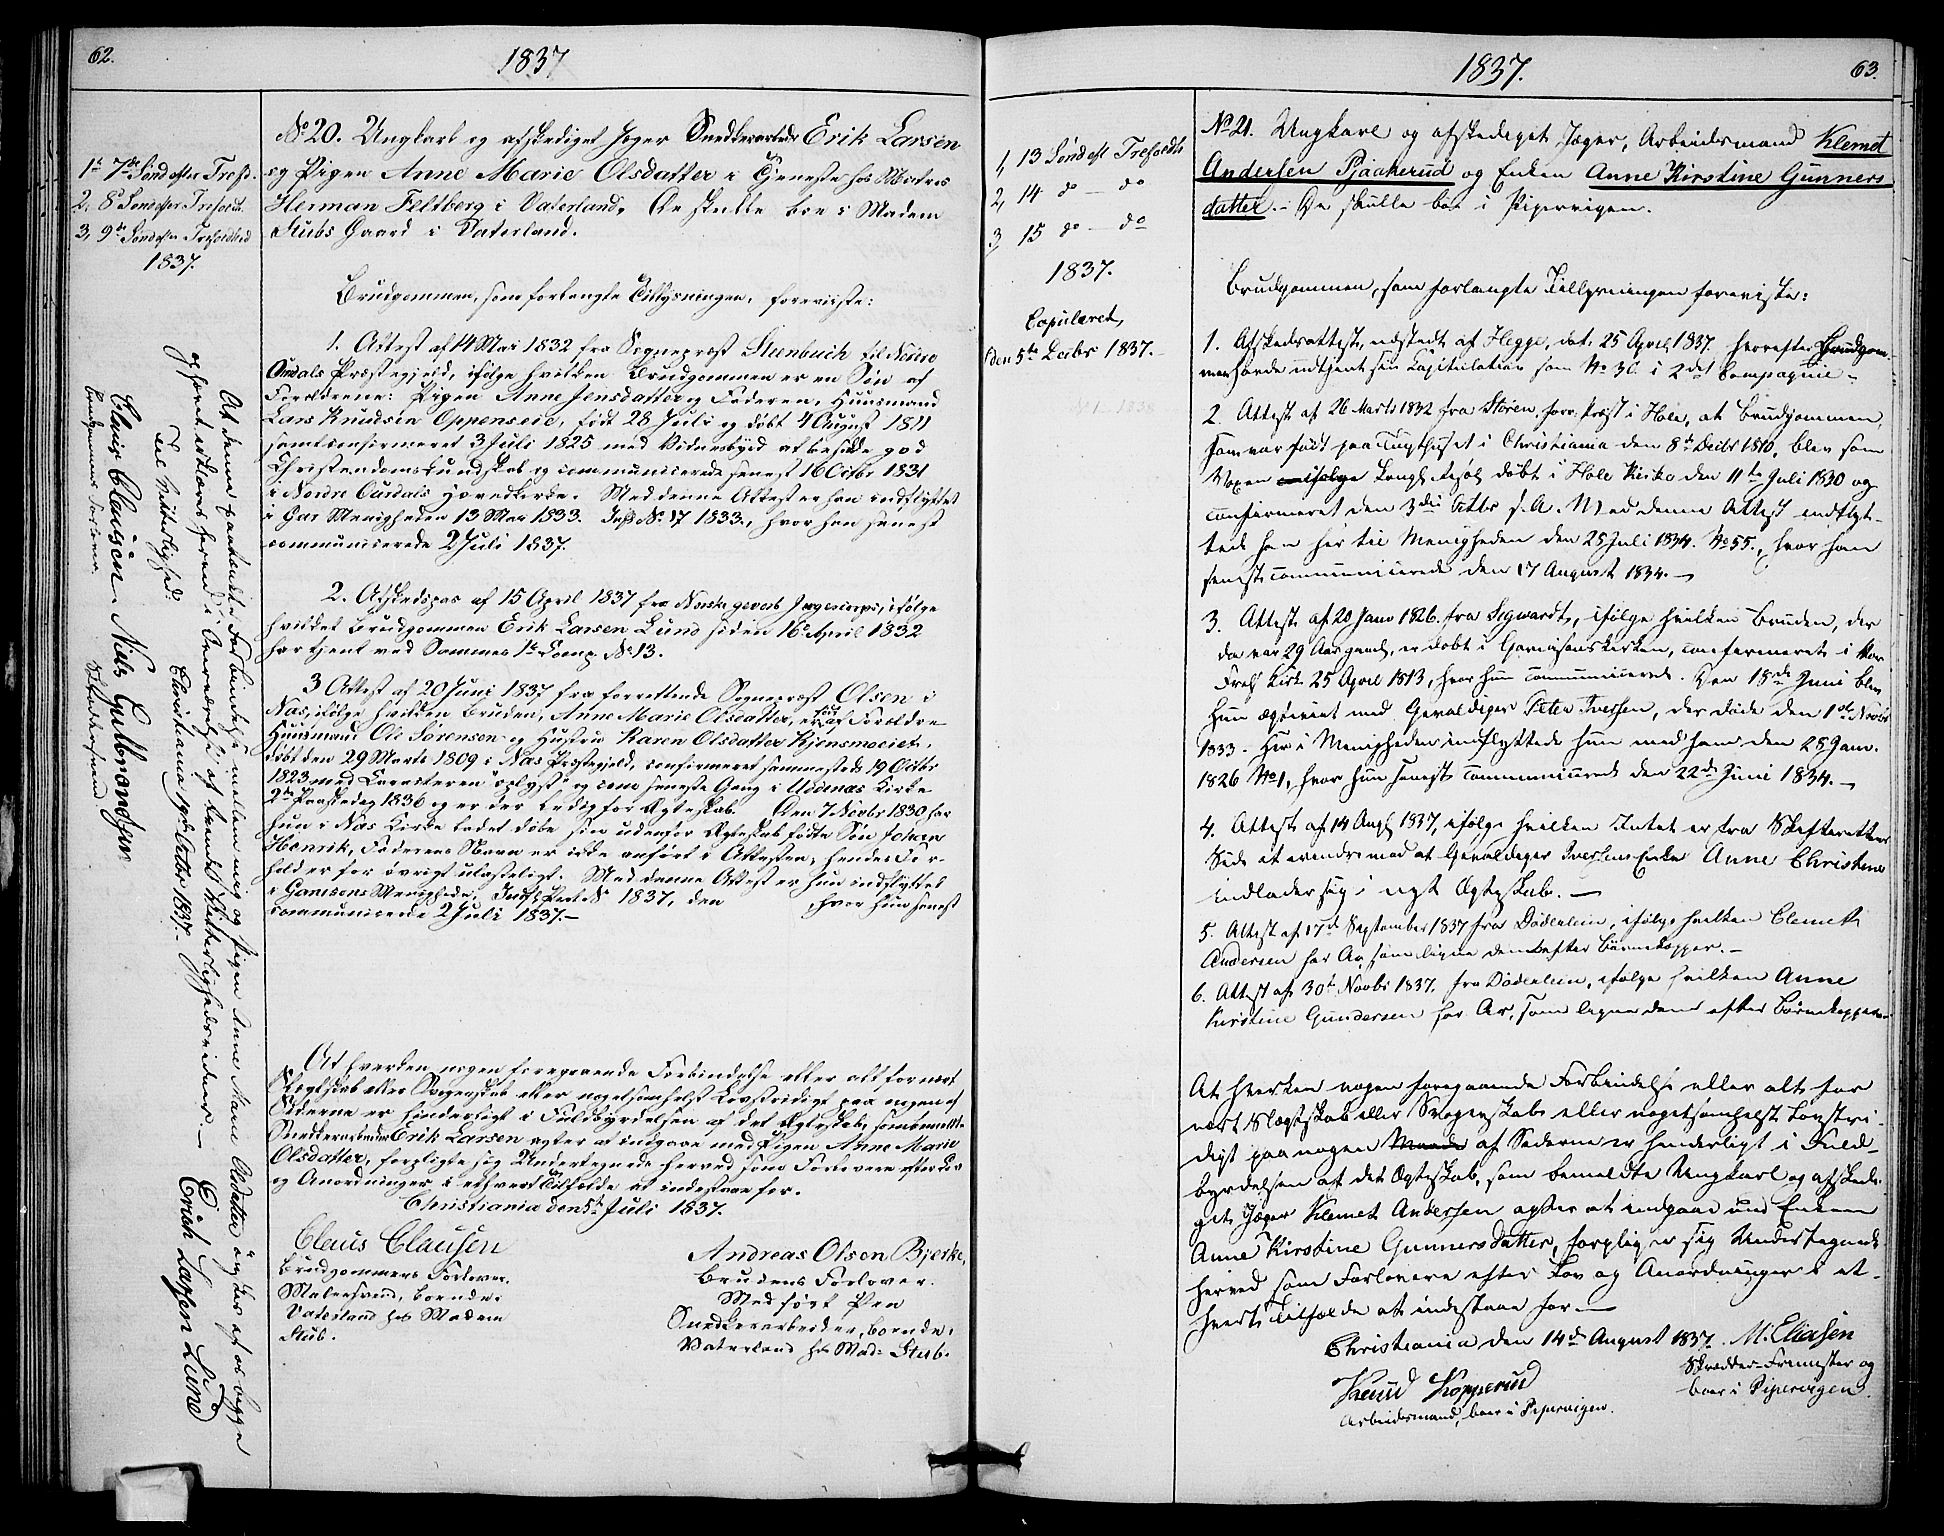 62.
1837
1ste 7de Sønd. efter Trefd.
2, 8de Sønd. efter Trefold.
3, 9de Sønd. efter Trefoldhed
1837.
No 20. Ungkarl og afskediget Jæger Snedkerarbeider Erik Larsen
og Pigen Anne Marie Olsdatter i Tjeneste hos
Herman Feltberg i Vaterland. De skulle boe i Madem
Stubs Gaard i Vaterland.
Brudgommen, som forlangte Tillysningen, foreviiste:
1. Attest af 14 Mai 1832 fra Sognepræst Steenbuch til Nordre
Ourdals Præstegjeld, ifølge hvilken Brudgommen er en Søn af
Forældrene: Pigen Anne Jensdatter og Faderen, Huusmand
Lars Knudsen Oppenseie, født 28 Juli og døbt 4 August 1811
samt confirmeret 3 Juli 1825 med Vidnesbyrd at besidde god
Christendomskundskab og communicerede senest 16 Octbr 1831
i Nordre Ourdals Hovedkirke. Med denne Attest er han indflyttet
i Gar. Menigheden 13 Mai 1833. No 17 1833., hvor han senest
communicerede 2 Juli 1837.
2. Afskedspas af 15 April 1837 fra Norske gevorb. Jægercorps, ifølge
hvilket Brudgommen Erik Larsen Lund siden 16de April 1832
har tjent ved Sammes 1ste Comp. No 13.
3 Attest af 20 Juni 1837 fra forrettende Sognepræst Olsen i
Næs, ifølge hvilken Bruden, Anne Marie Olsdatter, er født af Forældre
Huusmand Ole Sørensen og Hustru Karen Olsdatter Kjensmoeiet,
døbt den 29 Marts 1809 i Næs Præstegjeld, confirmeret sammesteds 19 Octbr
1823 med Caracteren "oplyst" og som seneste Gang i Udenæs Kirke
2den Paaskedag 1836 og er der ledig for Ægteskab. Den 7 Novbr 1830 har
hun i Næs Kirke ladet døbe sin udenfor Ægteskab fødte Søn Johan
Henrik, Faderens Navn er ikke anført i Attesten, hendes For-
hold er for øvrigt ulasteligt. Med denne Attest er hun indflyttet
i Garnisons Menighed. No 1837, den , hvor hun senest
communicerede 2 Juli 1837.-
At hverken nogen foregaaende Forbindelse eller alt for nært
Slægtskab eller Svogerskab eller nogetsomhelst Lovstridigt paa nogen af
Siderne er hinderligt i Fuldbyrdelsen af det Ægteskab, som bemeldte
Snedkerarbeider Erik Larsen agter at indgaae med Pigen Anne Marie
Olsdatter, forpligte sig Undertegnede herved som Forlovere efter Lov
og Anordninger i ethvert Tilfælde at indestaae for.
Christiania den 5te Juli 1837.
Claus Clausen
Brudgommens Forlover.
Malersvend, boende i
Vaterland hos Madem
Stub.
Andreas Olsen Bjerke,
Brudens Forlover.
Med ført Pen
Snedkerarbeider, boende i
Vaterland hos Mad: Stub.
At denne paatænkte Forbindelse mellem mig og Pigen Anne Marie Olsdatter ønskes af os begge
ophævet erklæres herved i Overværelse af tvende Vitterlighedsvidner.-
Christiania 19de Octbr 1837.- Erich Larsen Lund
Til Vitterlighed:
Claus Clausen Niels Gulbrandsen
Brudgommens Forlover.
1837.
63.
1, 13 Sønd. eft Trefoldh
2, 14 do - do
3, 15 do - do
1837.
Copuleret,
den 5te Decbr 1837.
No 1 - 1838
No 21. Ungkarl og afskediget Jæger, Arbeidsmand Klemet
Andersen Pjaakerud og Enken Anne Kirstine Gunners
datter.- De skulle boe i Pipervigen.
Brudgommen, som forlangte Tillysningen foreviste:
1. Afskedsattest, udstedt af Hegge, dat. 25 April 1837. hvorefter Brudgom
men havde udtjent sin Capitulation som No 30. i 2det Compagnie.-
2. Attest af 26 Marts 1832 fra Støren, Præst i Hole, at Brudgommen,
som var født paa Tugthuset i Christiania den 8de Decbr 1810, blev som
Voxen ifølge Kongl. Resol. døbt i Hole Kirke den 11te Juli 1830 og
confirmeret den 3die Octbr s. A. Med denne Attest indflyt-
tede han her til Menigheden den 25 Juli 1834. No 55., hvor han
senest communicerede den 17 August 1834.-
3. Attest af 20 Janr 1826. fra Sigwardt, ifølge hvilken Bruden, der
da var 29 Aar gammel, er døbt i Garnisonskirken, confirmeret i Vor
Frels. Kirke 25 April 1813, hvor hun communicerede. Den 18de Juni blev
hun ægteviet med Gevaldiger Peter Iversen, der døde den 1ste Novbr
1833. Her i Menigheden indflyttede hun med ham den 25 Janr.
1826 No 1, hvor hun senest communicerede den 22de Juni 1834.-
4. Attest af 14 Augst 1837, ifølge hvilken Intet er fra Skifterettens
Side at erindre mod at Gevaldiger Iversens Enke Anne Christine
indlader sig i nyt Ægteskab.-
5. Attest af 17de September 1837 fra Døderlein, ifølge hvilken Clemet
Andersen har Ar, som ligne dem efter Børnekopper.-
6. Attest af 30te Novbr 1837. fra Døderlein, ifølge hvilken Anne
Kirstine Gundersen har Ar, som ligne dem efter Børnekopper.-
At hverken nogen foregaaende Forbindelse eller alt for
nært Slægtskab eller Svogerskab eller nogetsomhelst Lovstri-
digt paa nogen Maade af Siderne er hinderligt i Fuld-
byrdelsen af det Ægteskab, som bemeldte Ungkarl og afskedi-
get Jæger Klemet Andersen agter at indgaae med Enken
Anne Kirstine Gunnersdatter, forpligter sig Undertegnede
herved som Forlovere efter Lov og Anordninger i et-
hvert Tilfælde at indestaae for.-
Christiania den 14de August 1837. M. Eliasen
Skrædder-Frimester og
boer i Pipervigen.
Knud Kopperud
Arbeidsmand, boer i Pipervigen.